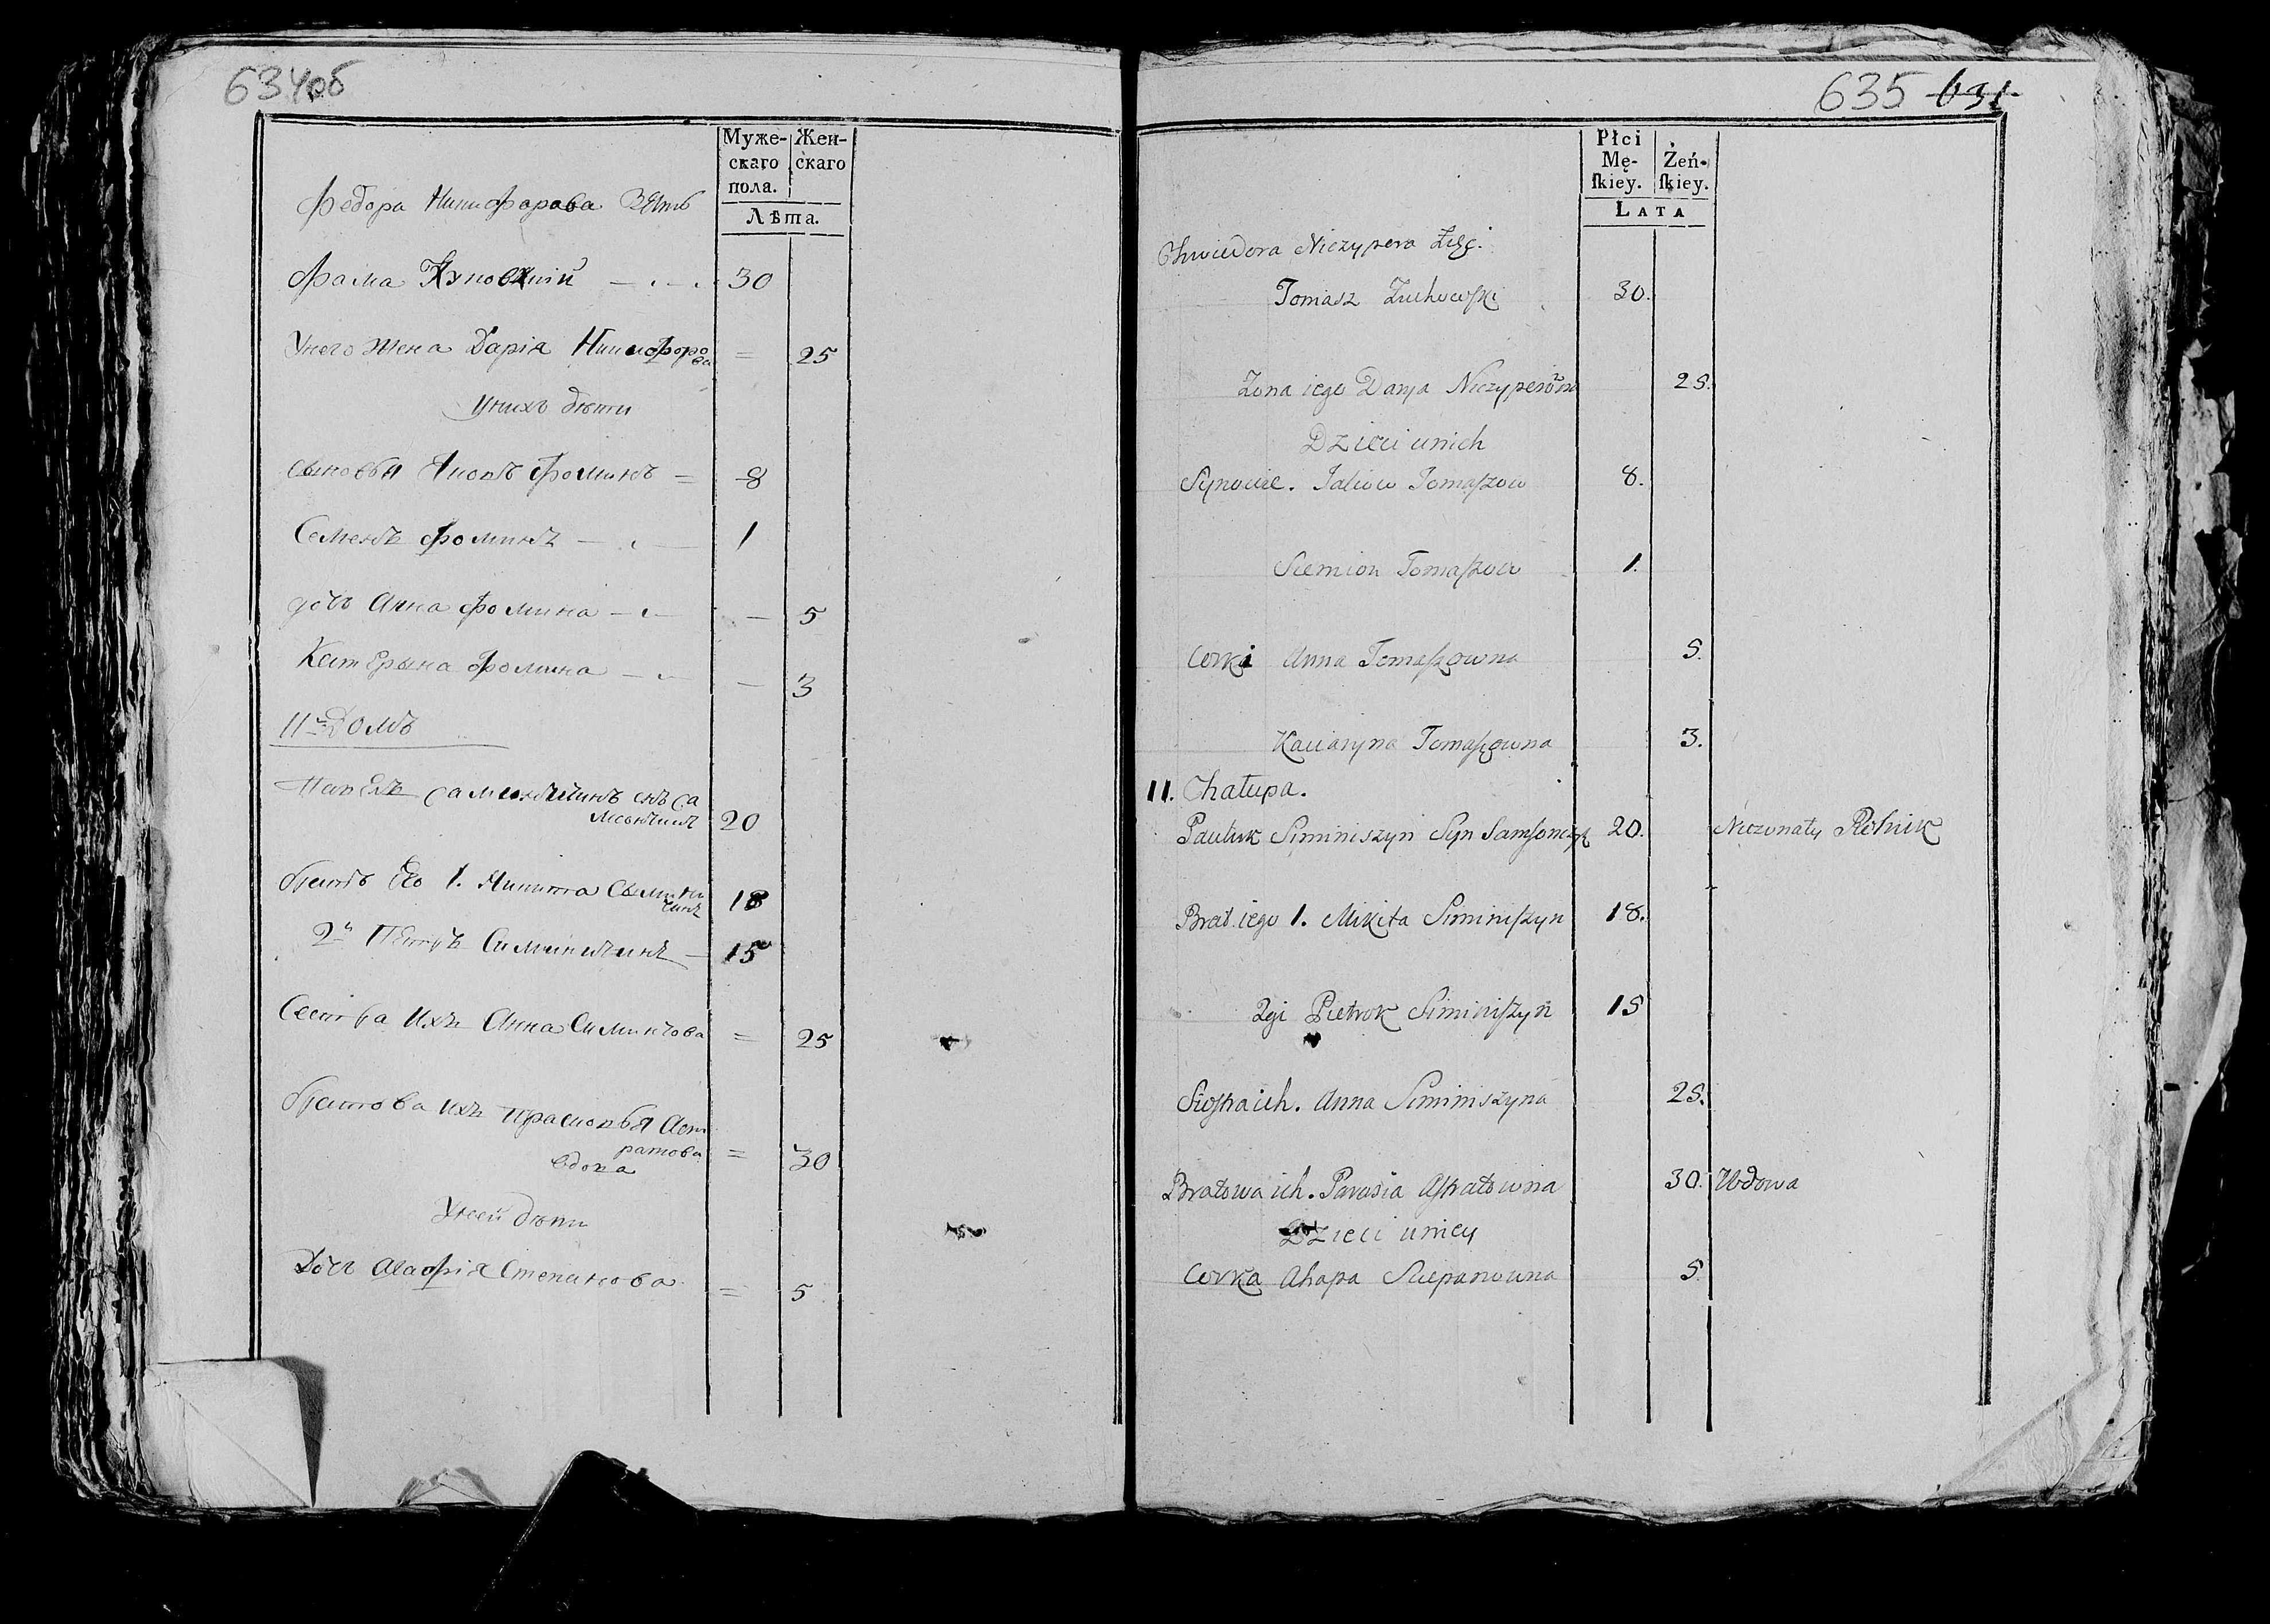 634об
Муже-
скаго
пола.
Жен-
скаго
Лѣта.
Федора Никифарава Зять
Фама 30
Унего жена Дарія Никифоро
ва = 25
Унихъ дѣти
сыновья Яковъ Фоминъ = 8
Семенъ Фоминъ — 1
дочь Анна Фомина — — 5
Катерына Фомина — — 3
11й Домъ
Павелъ снъ Са
20
братъ Его 1. Микита
18
2й Петръ Симинишинъ — 15
Сестра Ихъ Анна = 25
братова ихъ Прасковья Аст
ратова = 30
вдова
Уней дѣти
Дочь Агафія Степанова = 5
635 631
Płci
Mę-
ſkiey.
Żeń-
ſkiey.
LATA
Chwiedora Niczypera Zięć.
Tomasz Żuchowſki 30.
Zona iego Darja Niczyperówn 25.
Dzieci unich
Synowie. Jakow Tomaſzow 8.
Siemion Tomaſzow 1.
Corki Anna Tomaſzowna 5.
Kaciaryna Tomaſzowna 3.
11. Chałupa.
Pauluk Siminiszyn Syn Samſonczyk 20. Niezonaty Rolnik
Brat iego 1. Mikita Siminiſzyn 18.
2gi Pietrok Siminiſzyn 15
Sioſtra ich. Anna Siminiszyna 25.
Bratowa ich. Parasia Aſtratowna 30. Wdowa
Dzieci uniey
Corka Ahapa Sciepanowna 5